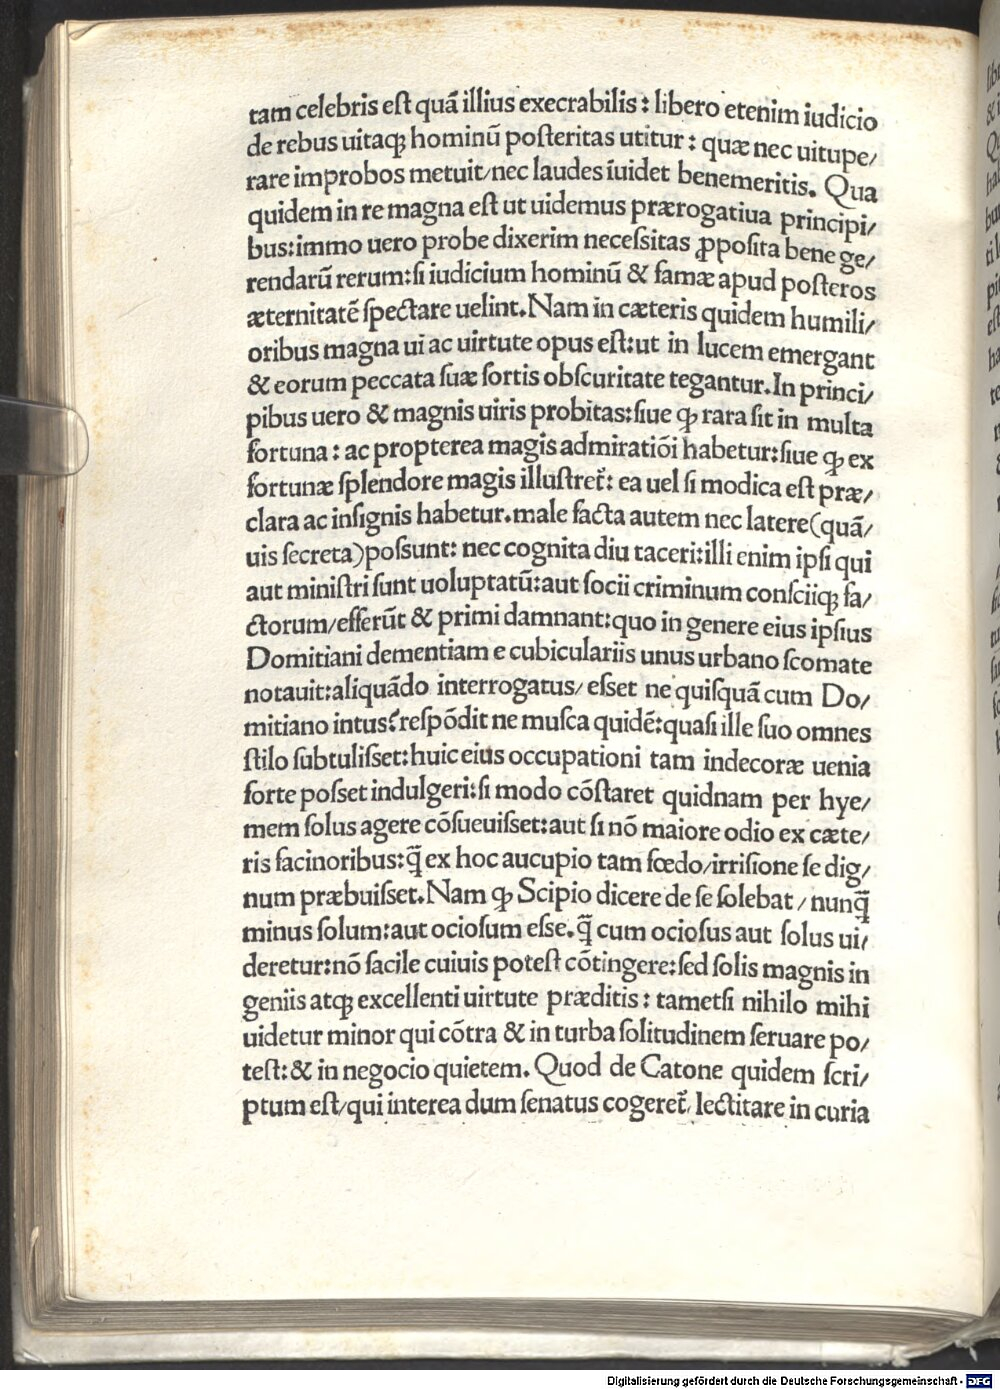 tam celebris eſt quã illius execrabilis : libero etenim iudicio
de rebus uitaqꝫ hominũ poſteritas utitur : quæ nec uitupe/
rare improbos metuit/nec laudes iuidet benemeritis. Qua
quidem in re magna eſt ut uidemus prærogatiua principi/
bus:immo uero probe dixerim neceſsitas ꝓpoſita bene ge/
rendarũ rerum:ſi iudicium hominũ & famæ apud poſteros
æternitatẽ ſpectare uelint.Nam in cæteris quidem humili/
oribus magna ui ac uirtute opus eſt:ut in lucem emergant
& eorum peccata ſuæ ſortis obſcuritate tegantur.In princi/
pibus uero & magnis uiris probitas:ſiue ꝙ rara ſit in multa
fortuna : ac propterea magis admiratiõi habetur:ſiue ꝙ ex
fortunæ ſplendore magis illuſtret᷑: ea uel ſi modica eſt præ/
clara ac inſignis habetur.male facta autem nec latere(quã/
uis ſecreta)poſsunt: nec cognita diu taceri:illi enim ipſi qui
aut miniſtri ſunt uoluptatũ:aut ſocii criminum conſciiqꝫ fa/
ctorum/efferũt & primi damnant:quo in genere eius ipſius
Domitiani dementiam e cubiculariis unus urbano ſcomate
notauit:aliquãdo interrogatus/ eſset ne quiſquã cum Do/
mitiano intus?reſpõdit ne muſca quidẽ:quaſi ille ſuo omnes
ſtilo ſubtuliſset:huic eius occupationi tam indecoræ uenia
forte poſset indulgeri:ſi modo cõſtaret quidnam per hye/
mem ſolus agere cõſueuiſset:aut ſi nõ maiore odio ex cæte/
ris facinoribus:q̃ ex hoc aucupio tam fœdo/irriſione ſe dig/
num præbuiſset.Nam ꝙ Scipio dicere de ſe ſolebat / nunq̃
minus ſolum:aut ocioſum eſse.q̃ cum ocioſus aut ſolus ui/
deretur:nõ facile cuiuis poteſt cõtingere:ſed ſolis magnis in
geniis atqꝫ excellenti uirtute præditis : tametſi nihilo mihi
uidetur minor qui cõtra & in turba ſolitudinem ſeruare po/
teſt:& in negocio quietem. Quod de Catone quidem ſcri/
ptum eſt/qui interea dum ſenatus cogeret᷑/ lectitare in curia
Digitalisierung gefördert durch die Deutsche Forschungsgemeinschaft - DFG